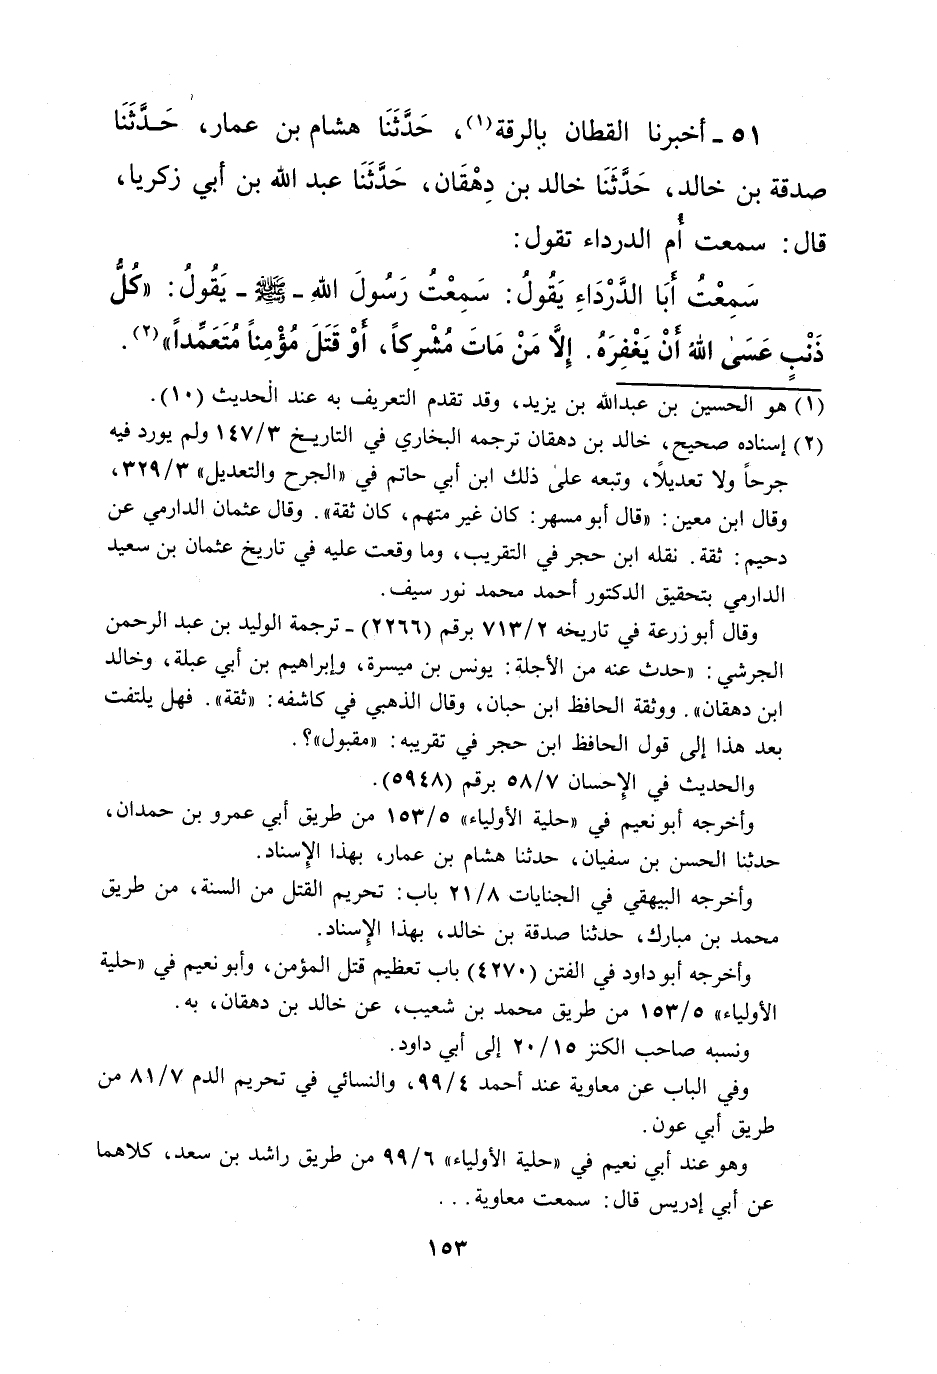 ٥١ - أخبرنا القطان بالرقة(١)، حَدَّثَنَا هشام بن عمار، حَـدَّثَنَا
صدقة بن خالد، حَدَّثَنَا خالد بن دِهْقَان، حَدَّثَنَا عبد الله بن أبي زكريا،
قال: سمعت أُم الدرداء تقول:
سَمِعْتُ أَبَا الدَّرْدَاءِ يَقُولُ: سَمِعْتُ رَسُولَ اللهِ - ﷺ - يَقُولُ: «كُلُّ
ذَنْبٍ عَسَىٰ اللهُ أَنْ يَغْفِرَهُ. إِلَّا مَنْ مَاتَ مُشْرِكاً، أَوْ قَتَلَ مُؤْمِناً مُتَعَمِّداً»(٢).
(١) هو الحسين بن عبدالله بن يزيد، وقد تقدم التعريف به عند الحديث (١٠).
(٢) إسناده صحيح، خالد بن دهقان ترجمه البخاري في التاريخ ١٤٧/٣ ولم يورد فيه
جرحاً ولا تعديلًا، وتبعه علىٰ ذلك ابن أبي حاتم في «الجرح والتعديل» ٣٢٩/٣،
وقال ابن معين: «قال أبو مسهر: كان غير متهم، كان ثقة». وقال عثمان الدارمي عن
دحيم: ثقة. نقله ابن حجر في التقريب، وما وقعت عليه في تاريخ عثمان بن سعيد
الدارمي بتحقيق الدكتور أحمد محمد نور سيف.
وقال أبو زرعة في تاريخه ٧١٣/٢ برقم (٢٢٦٦) - ترجمة الوليد بن عبد الرحمن
الجرشي: «حدث عنه من الأجلة: يونس بن ميسرة، وإبراهيم بن أبي عبلة، وخالد
ابن دهقان». ووثقة الحافظ ابن حبان، وقال الذهبي في كاشفه: «ثقة». فهل يلتفت
بعد هذا إلى قول الحافظ ابن حجر في تقريبه: «مقبول»؟.
والحديث في الإحسان ٥٨/٧ برقم (٥٩٤٨).
وأخرجه أبو نعيم في «حلية الأولياء» ١٥٣/٥ من طريق أبي عمرو بن حمدان،
حدثنا الحسن بن سفيان، حدثنا هشام بن عمار، بهذا الإسناد.
وأخرجه البيهقي في الجنايات ٢١/٨ باب: تحريم القتل من السنة، من طريق
محمد بن مبارك، حدثنا صدقة بن خالد، بهذا الإسناد.
وأخرجه أبو داود في الفتن (٤٢٧٠) باب تعظيم قتل المؤمن، وأبو نعيم في «حلية
الأولياء» ١٥٣/٥ من طريق محمد بن شعيب، عن خالد بن دهقان، به.
ونسبه صاحب الكنز ٢٠/١٥ إلى أبي داود.
وفي الباب عن معاوية عند أحمد ٩٩/٤، والنسائي في تحريم الدم ٨١/٧ من
طريق أبي عون.
وهو عند أبي نعيم في «حلية الأولياء» ٩٩/٦ من طريق راشد بن سعد، كلاهما
عن أبي إدريس قال: سمعت معاوية...
١٥٣